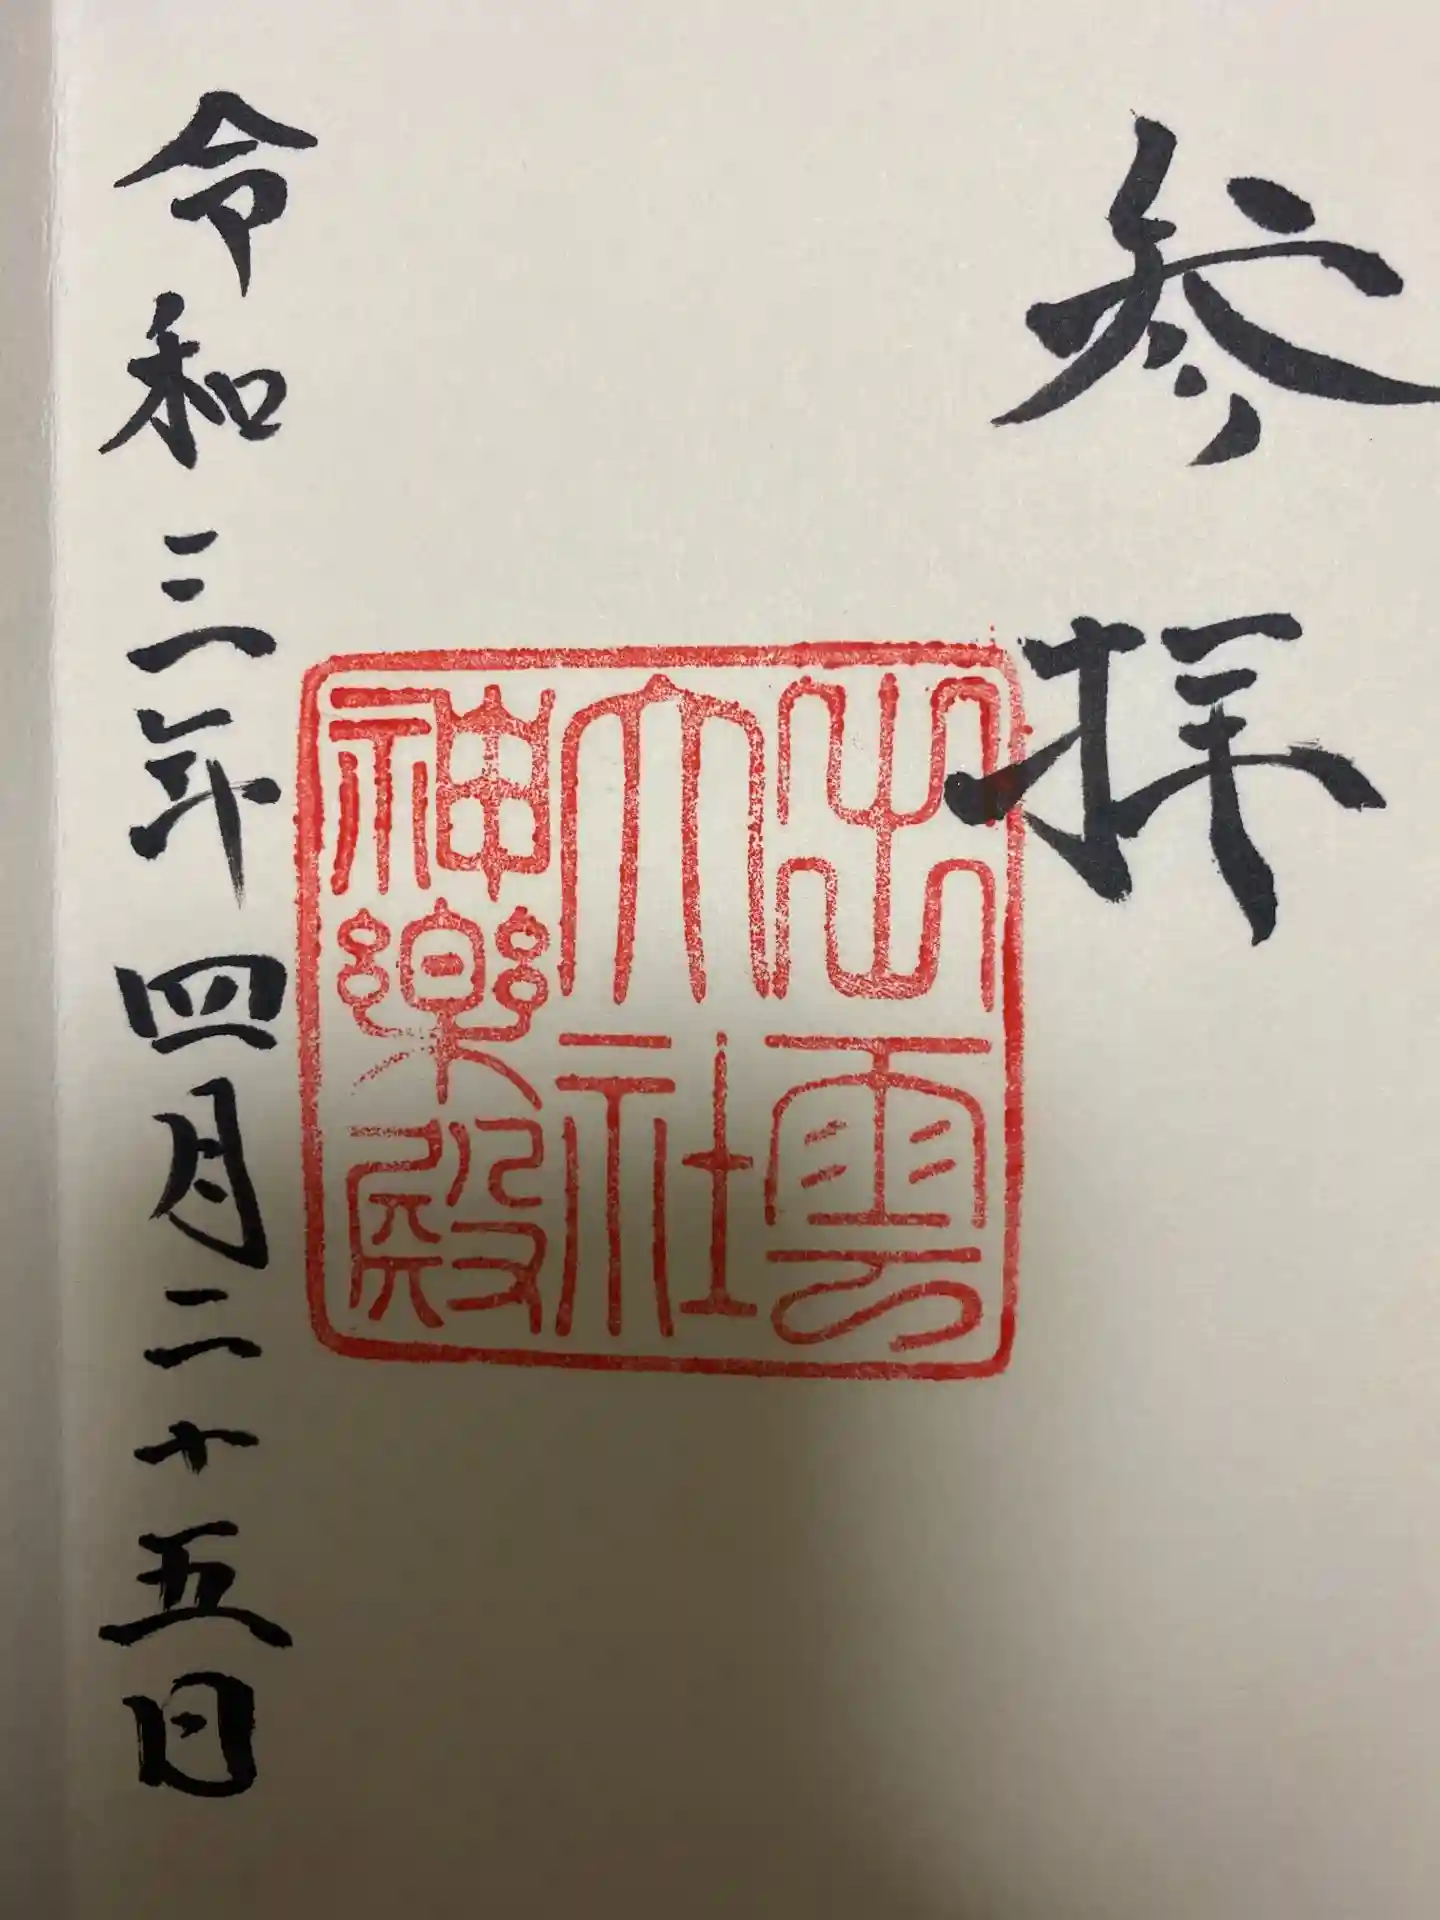 参拝
出雲
大社
神樂殿
令和三年四月二十五日